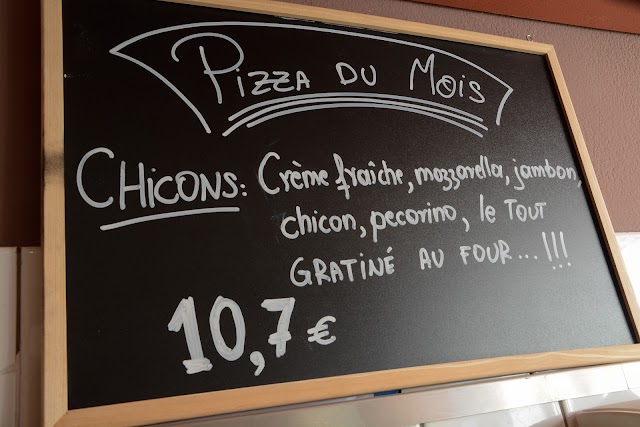 PIZZA DU MOIS
CHICONS: Crème fraîche, mozzarella, jambon,
chicon, pecorino, le TOUT
GRATINÉ AU FOUR...!!!
10,7 €